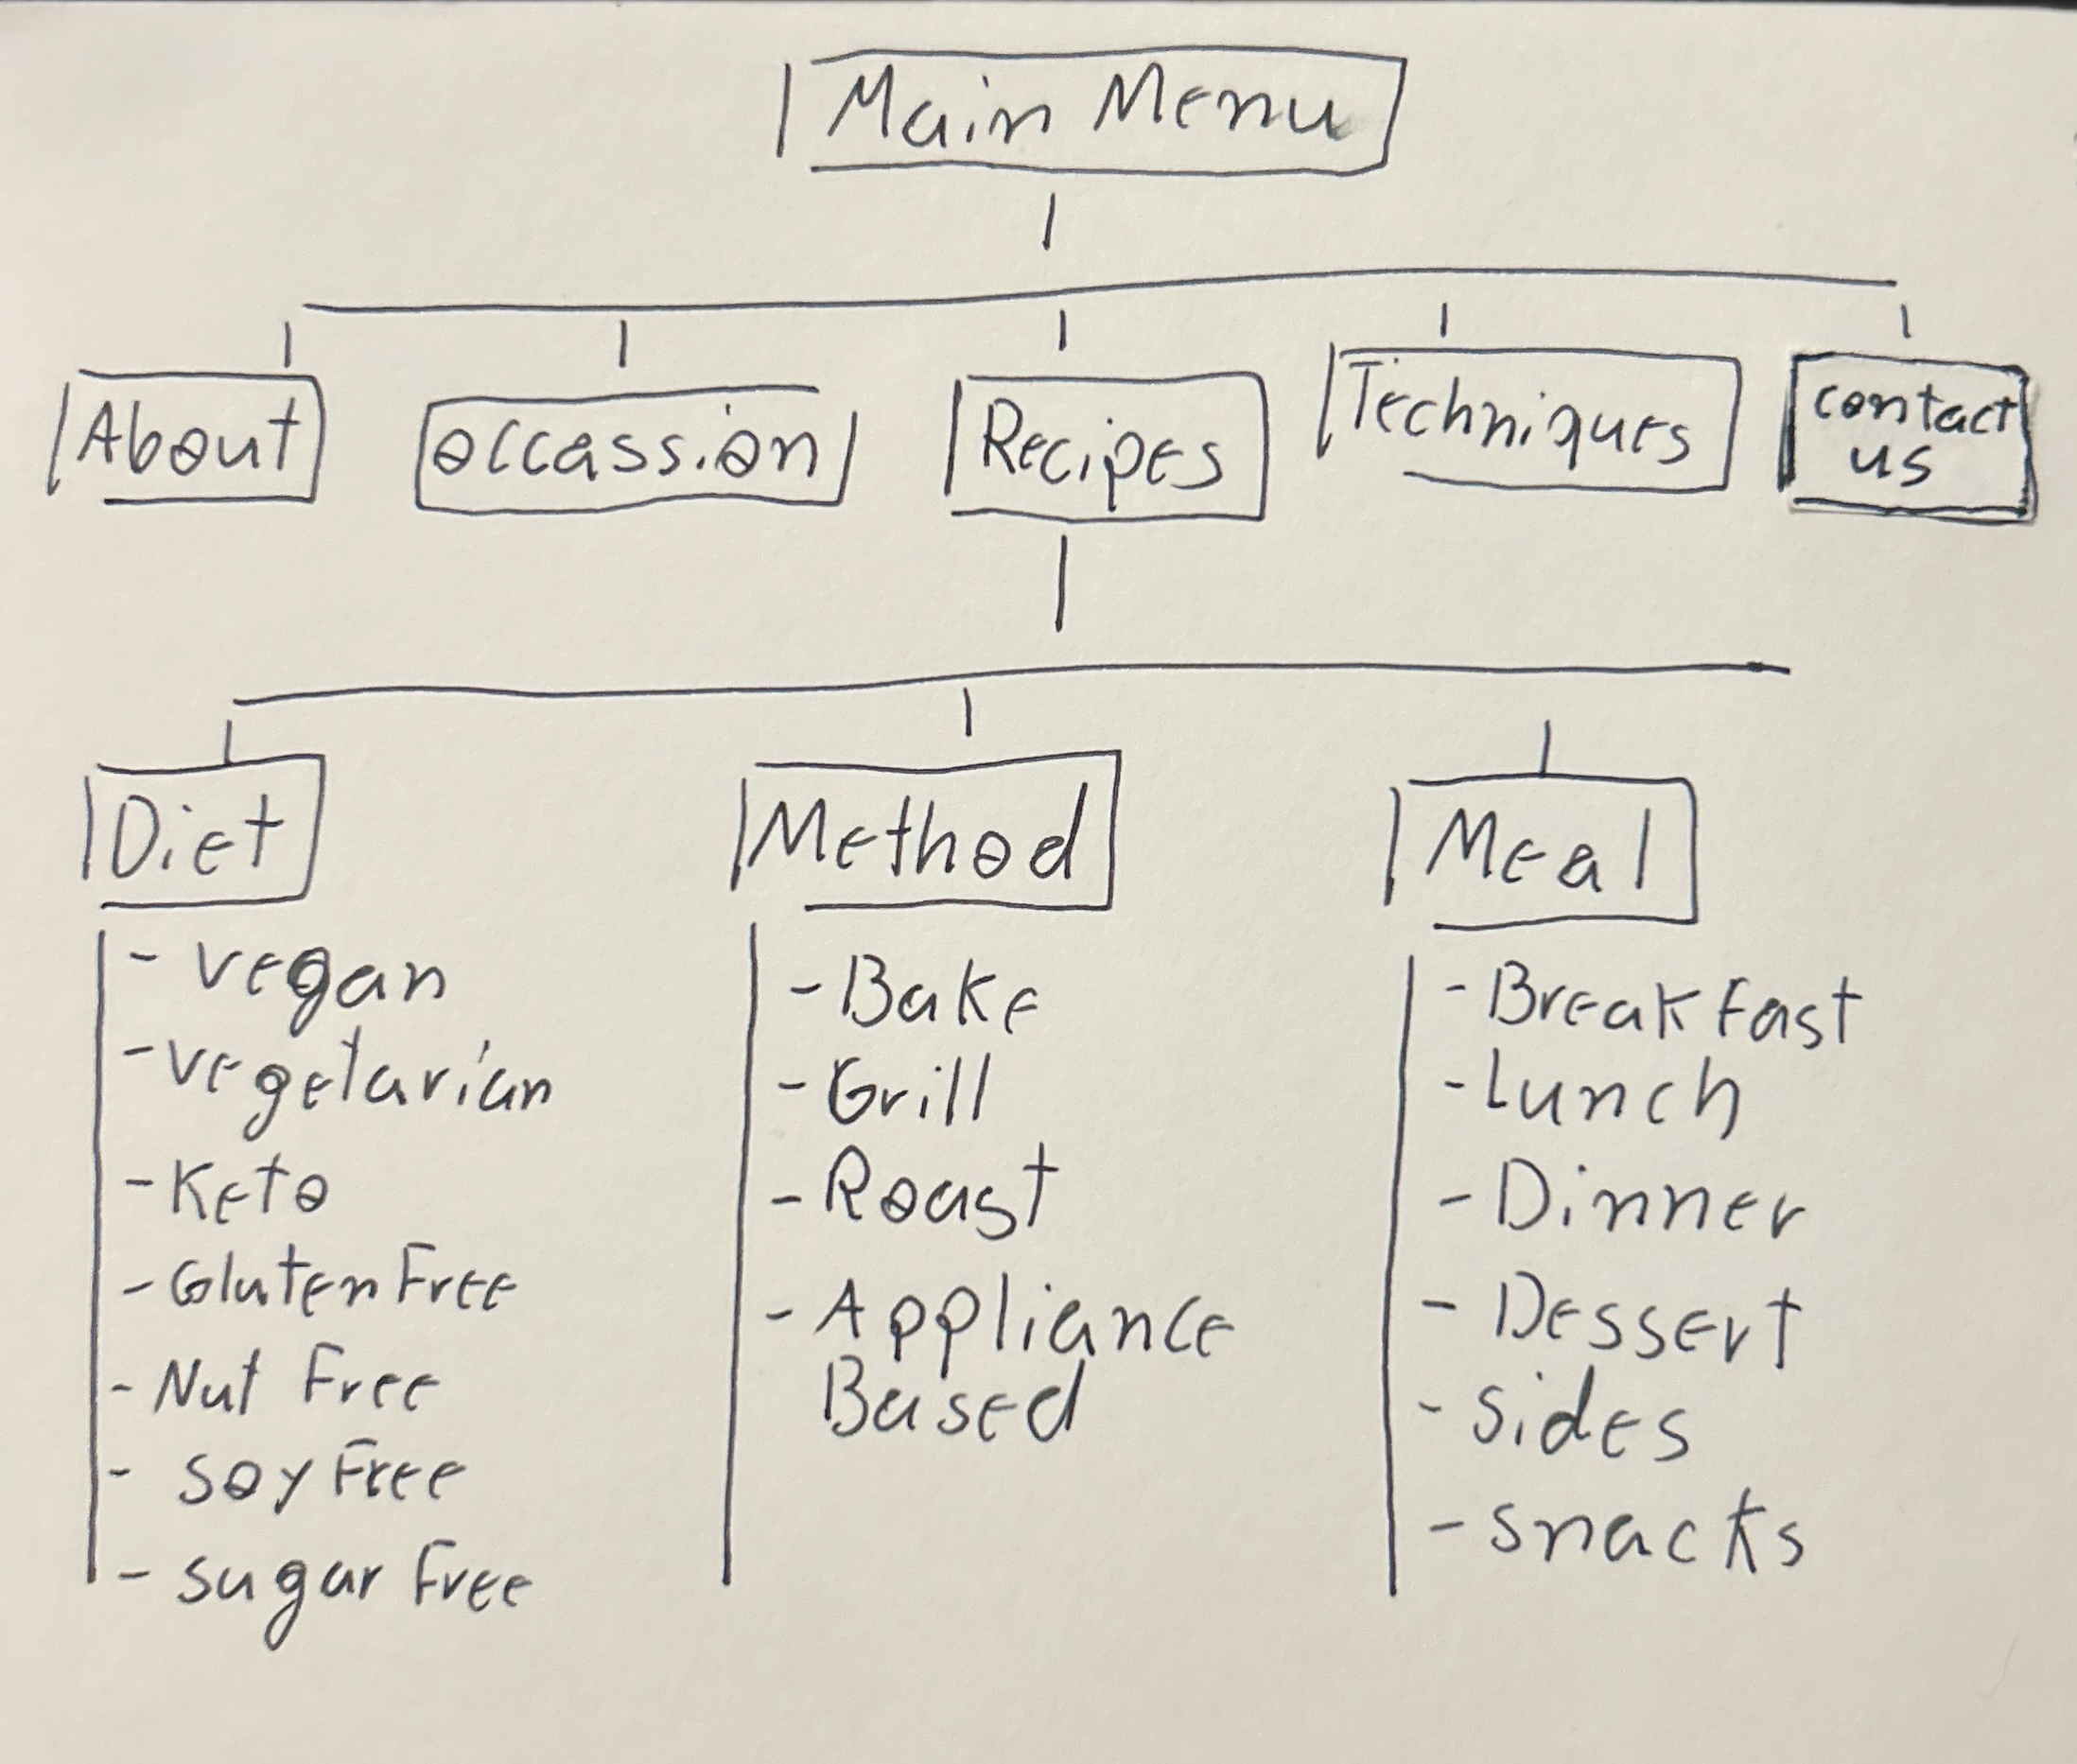 Main Menu
About
occassion
Recipes
Techniques
contact
us
Diet
- vegan
- vegetarian
- Keto
- Gluten Free
- Nut Free
- soy Free
- sugar Free
Method
- Bake
- Grill
- Roast
- Appliance
Based
Meal
- BreakFast
- Lunch
- Dinner
- Dessert
- sides
- snacks